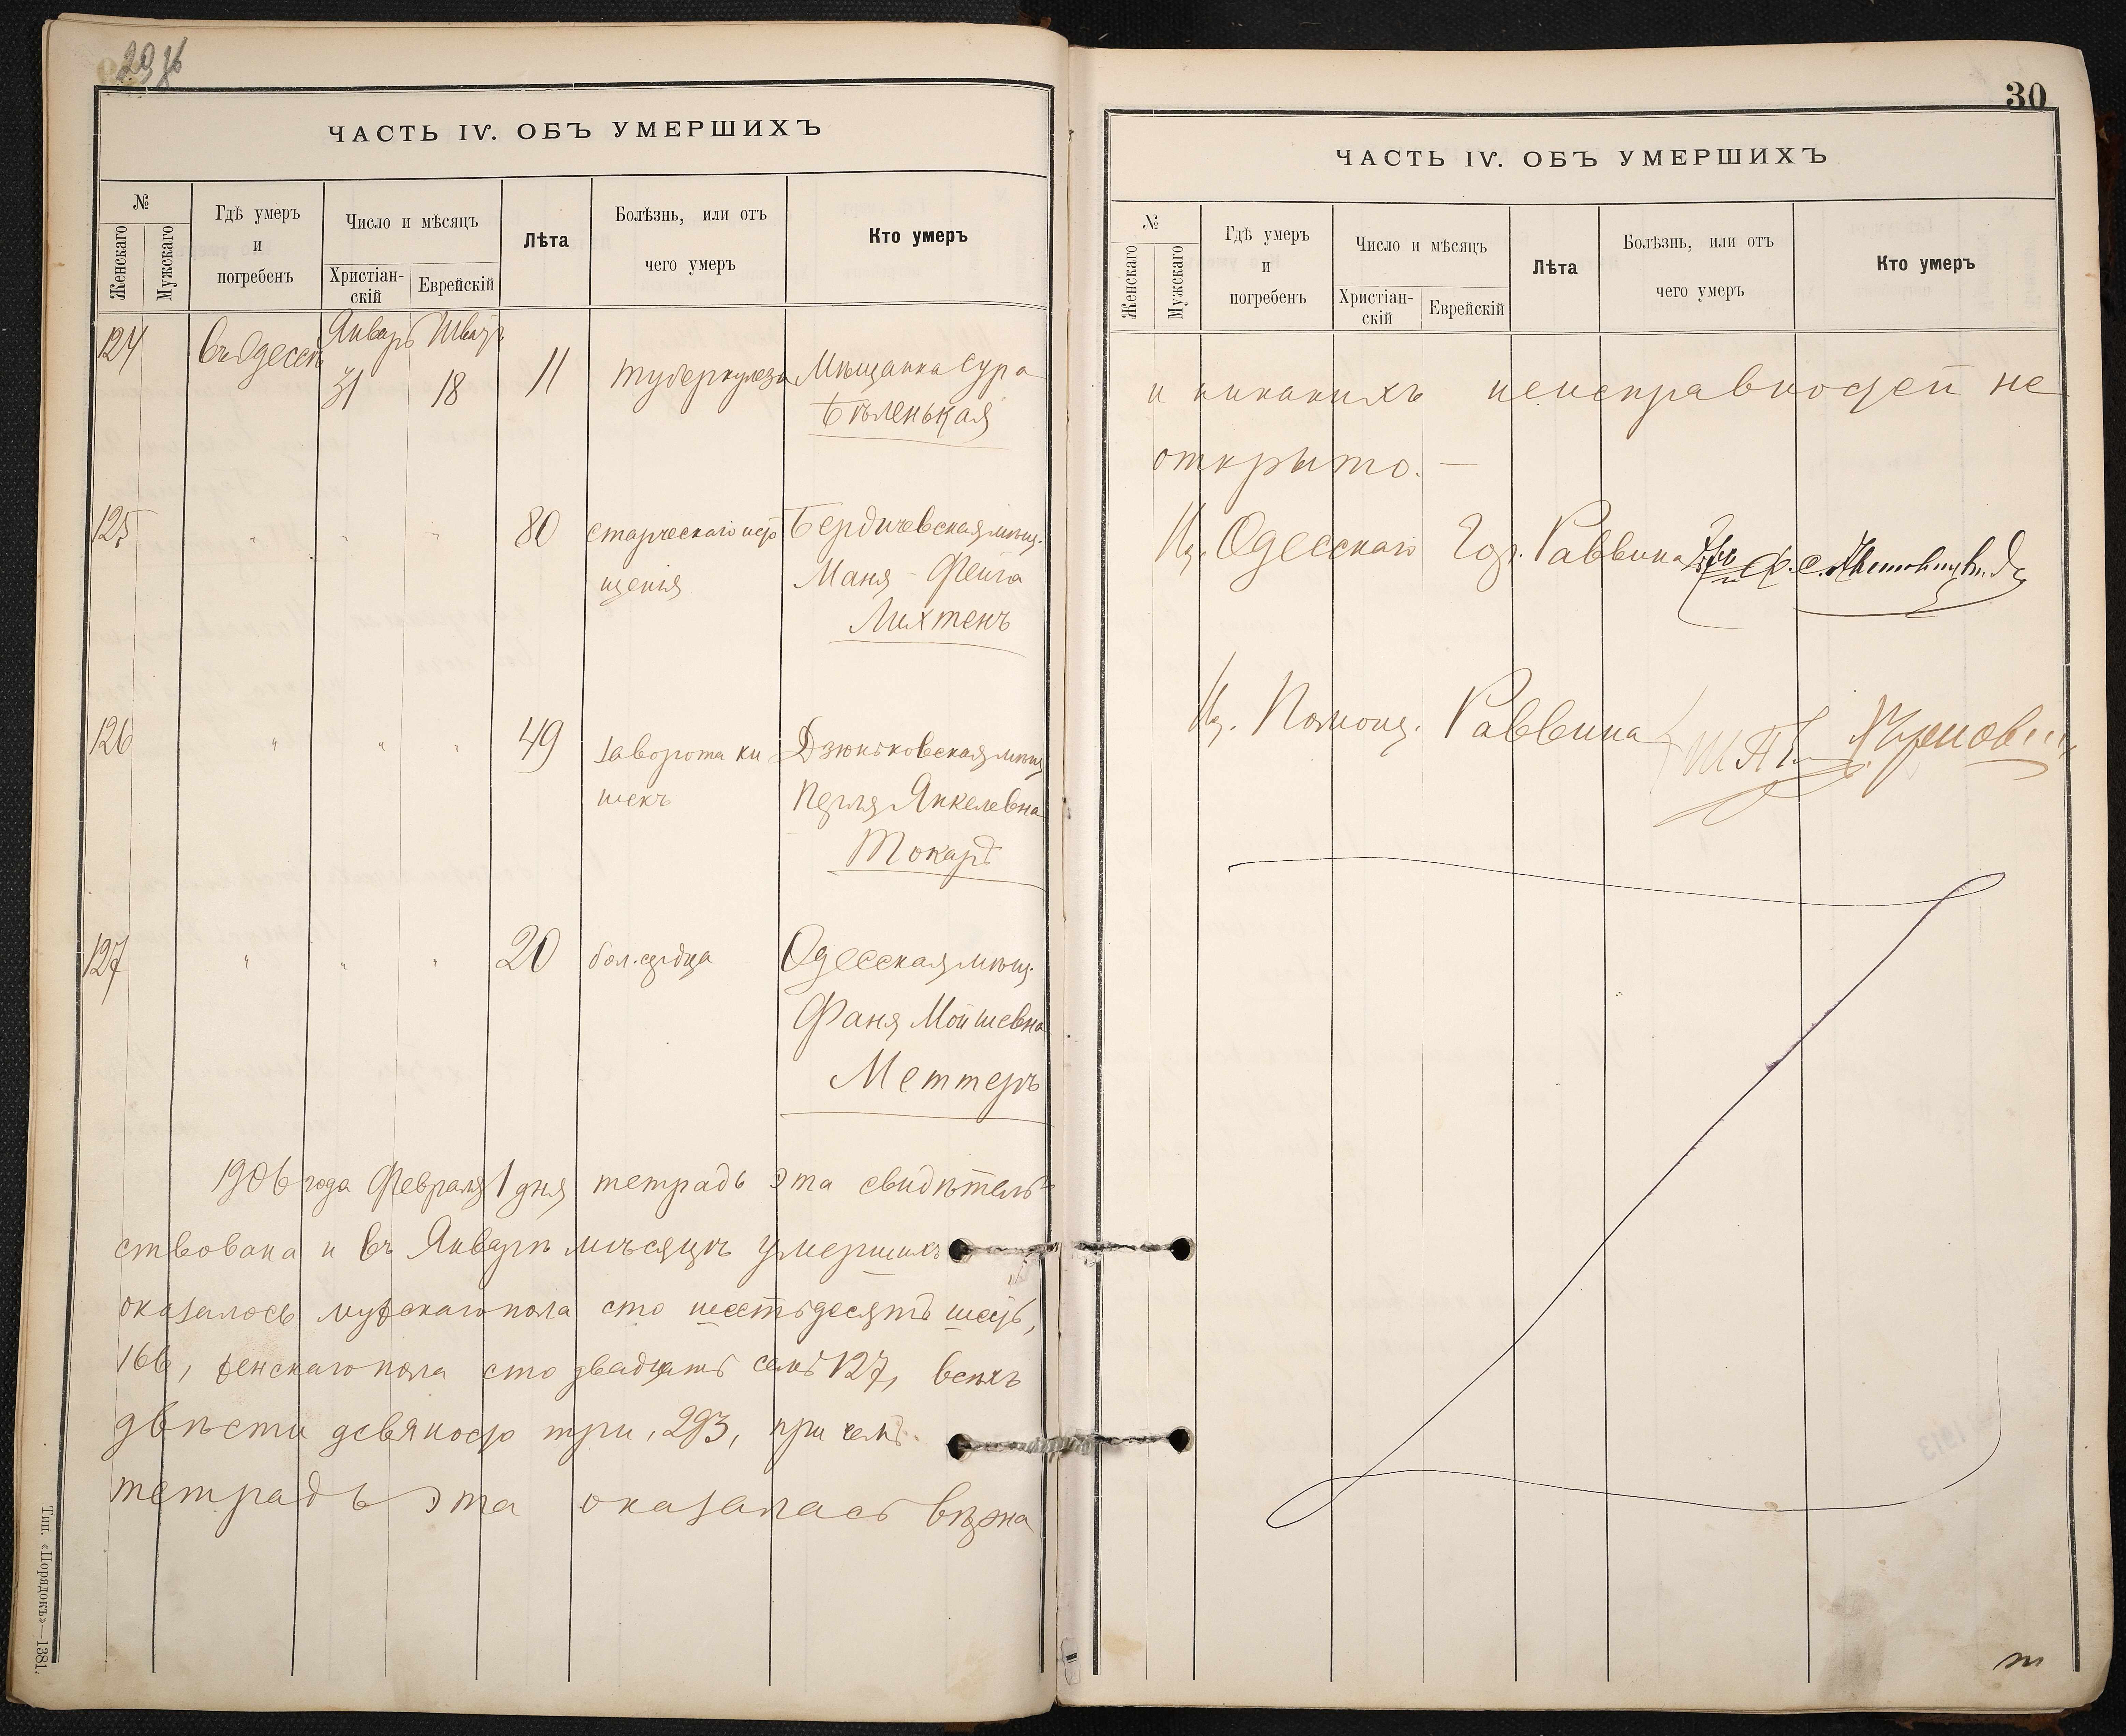 29 об
ЧАСТЬ IV. ОБЪ УМЕРШИХЪ
№
Женскаго
Мужскаго
Гдѣ умеръ
и
погребенъ
Число и мѣсяцъ
Христіан-
скій
Еврейскій
Лѣта
Болѣзнь, или отъ
чего умеръ
Кто умеръ
124 въ Одессѣ Январь 31 Шватъ 18 11 туберкулеза Мѣщанка Сура
Бѣленькая
125 " " " 80 старческаго исто Бердичевская мѣщ.
щенія Маня-Фейга
Лихтенъ
126 " " " 49 заворота ки Дзюньковская мѣщ
шекъ Перля Янкелевна
Токарь
127 " " " 20 бол. сердца Одесская мѣщ.
Фаня Мойшевна
Меттеръ
1906 года Февраля 1 дня тетрадь эта свидѣтель-
ствована и въ Январѣ мѣсяцѣ умершихъ
оказалось мужскаго пола сто шестьдесятъ шесть,
166, женскаго пола сто двадцать семь 127, всѣхъ
двѣсти девяносто три, 293, при чемъ
тетрадь эта оказалась вѣрна
Тип. «Порядокъ»—1381.
30
ЧАСТЬ IV. ОБЪ УМЕРШИХЪ
№
Женскаго
Мужскаго
Гдѣ умеръ
и
погребенъ
Число и мѣсяцъ
Христіан-
скій
Еврейскій
Лѣта
Болѣзнь, или отъ
чего умеръ
Кто умеръ
и никакихъ неисправностей не
открыто. —
Одесскаго Гор. Раввина
Помощ. Раввина